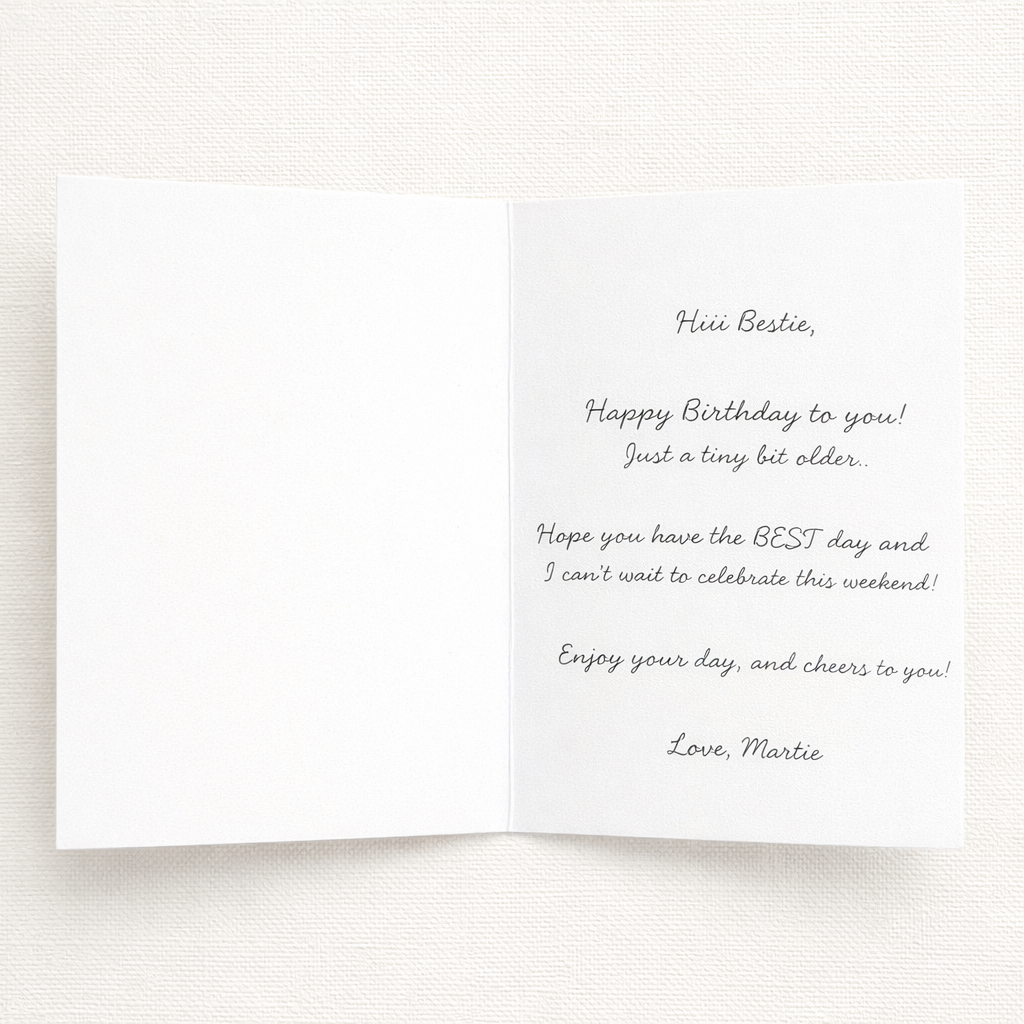 Hiii Bestie,
Happy Birthday to you!
Just a tiny bit older..
Hope you have the BEST day and
I can't wait to celebrate this weekend!
Enjoy your day, and cheers to you!
Love, Martie